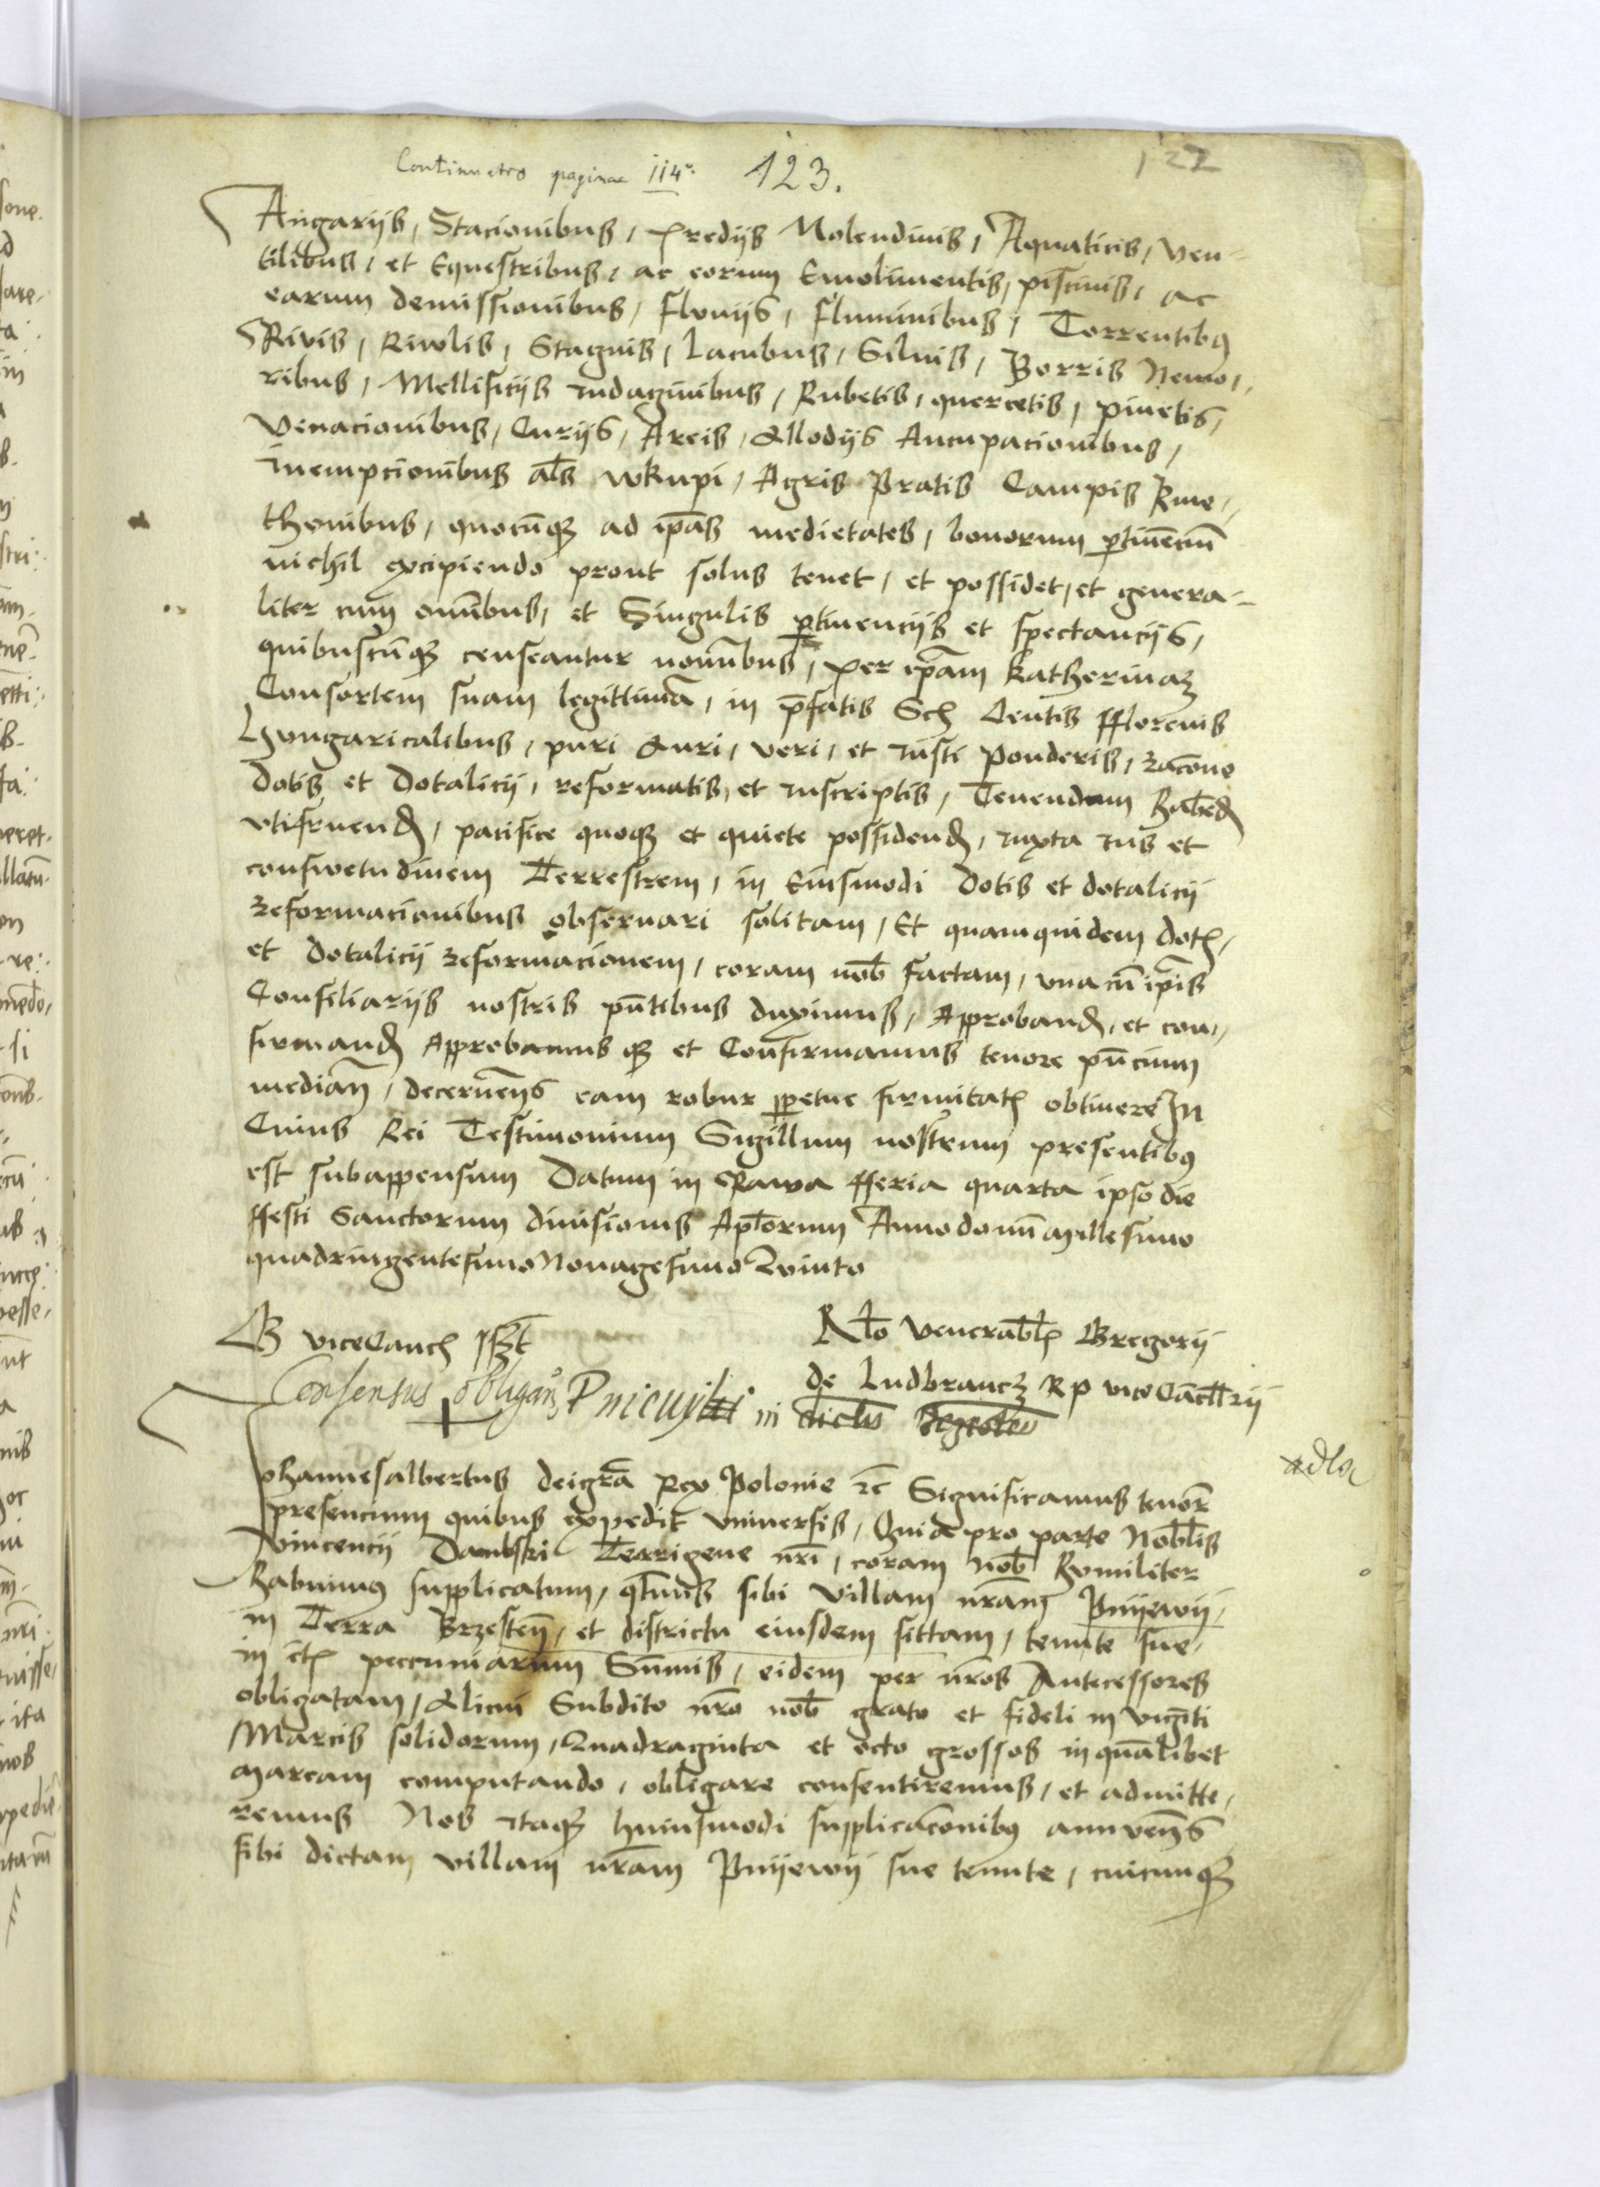 Continuatio paginae 114. 123. 122
Angariis, Stacionibus, Prediis Molendinis, Aquaticis, Ven-
tilibus, et Equestribus, ac eorum Emolimentis, piscinis, ac
earum demissionibus, fluviis, fluminibus, Torrentibus
Rivis, Riwlis, Stagnis, Lacubus, Siluis, Borris Nemo-
ribus, Mellificiis Indaginibus, Rubetis, quercetis, pinetis,
Venacionibus, Curiis, Areis, Allodiis Aucupacionibus,
Inempcionibus als wkupi, Agris Pratis Campis Kme-
thonibus, quocunque ad ipsas medietates, bonorum pertinencium
nichil excipiendo prout solus tenet, et possidet, et genera-
liter cum omnibus, et Singulis pertinenciis et spectanciis,
quibuscunque censeantur nominibus, per ipsam Katherinam
Consortem suam legittima, in prefatis Sex Centis fflorenis
Hungaricalibus, puri Auri, veri, et Iusti Ponderis, racione
dotis et Dotalicii, reformatis, et Inscriptis, Tenendam habend
vtifruend, pacifice quoque et quiete possidend, iuxta ius et
conswetudinem Terrestrem, in Eiusmodi dotis et dotalicii
reformacionibus observari solitam, Et quamquidem dotis,
et dotalicii reformacionem, coram nobis factam, vna cum ipsis
Consiliariis nostris presentibus duximus, Approband, et con-
firmand Approbamus que et Confirmamus tenore presencium
median, decernens eam robur perpetue firmitatis obtinere In
Cuius Rei Testimonium Sigillum nostrum presentibus
est subappensum Datum in Rawa fferia quarta ipso die
ffesti Sanctorum divisionis Apostolorum Anno domini Millesimo
quadringentesimo Nonagesimo Quinto
G vice Canc sszt
Relatio Venerabilis Gregorii
de Ludbrancz R P vice Cancellarii
Consensus obligandi Pnieuy in
Johannes albertus dei gracia Rex Polonie etc Significamus tenore
presencium quibus expedit vniversis, Quia pro parte Nobilis
Vincencii Dambski Terrigene nostri, coram nobis humiliter
habuimus supplicatum, quatenus sibi villam nostram Pniiewii,
in Terra Brzesten, et districtu eiusdem sittam, tenute sue,
in certis peccuniarum Summis, eidem per nostros Antecessores
obligatam, Alicui Subdito nostro nobis grato et fideli in viginti
Marcis solidorum, Quadraginta et octo grossos in quamlibet
marcam computando, obligare consentiremus, et admitte-
remus Nos Itaque huiusmodi supplicacionibus annuens
sibi dictam villam nostram Pniiewii sue tenute, cuicunque